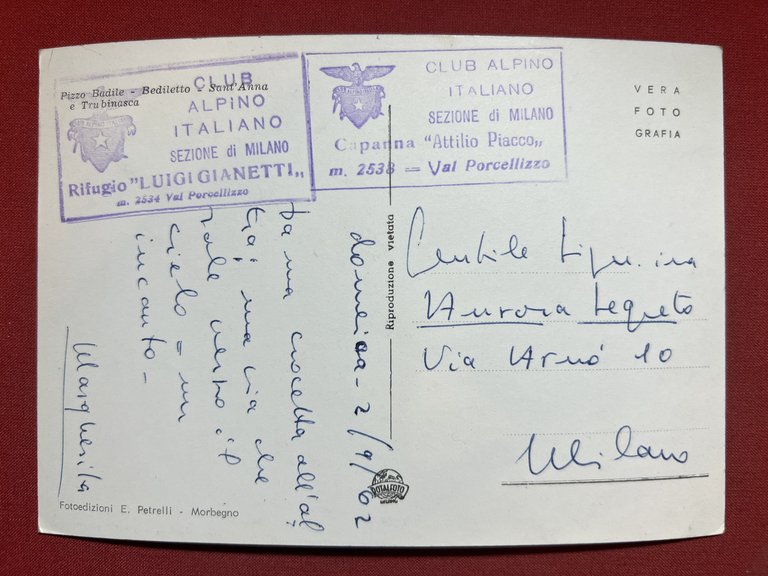 Pizzo Badile - Bediletto - Sant'Anna
e Trubinasca
CLUB
ALPINO
ITALIANO
SEZIONE di MILANO
Rifugio "LUIGI GIANETTI„
m. 2534 Val Porcellizzo
CLUB ALPINO
ITALIANO
SEZIONE di MILANO
Capanna "Attilio Piacco„
m. 2538 = Val Porcellizzo
VERA
FOTO
GRAFIA
domenica - 2/9/62
Da una crocetta all'al
tra; via che
sale verso il
cielo = un
incanto -
Margherita
Riproduzione vietata
Gentile
Aurora
Via 10
Milano
TOTALFOTO
MILANO
Fotoedizioni E. Petrelli - Morbegno